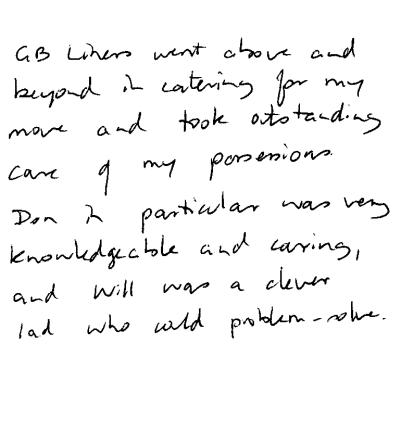 GB Liners went above and
beyond in catering for my
move and took outstanding
care of my possessions.
Don in particular was very
knowledgeable and caring,
and Will was a clever
lad who could problem-solve.